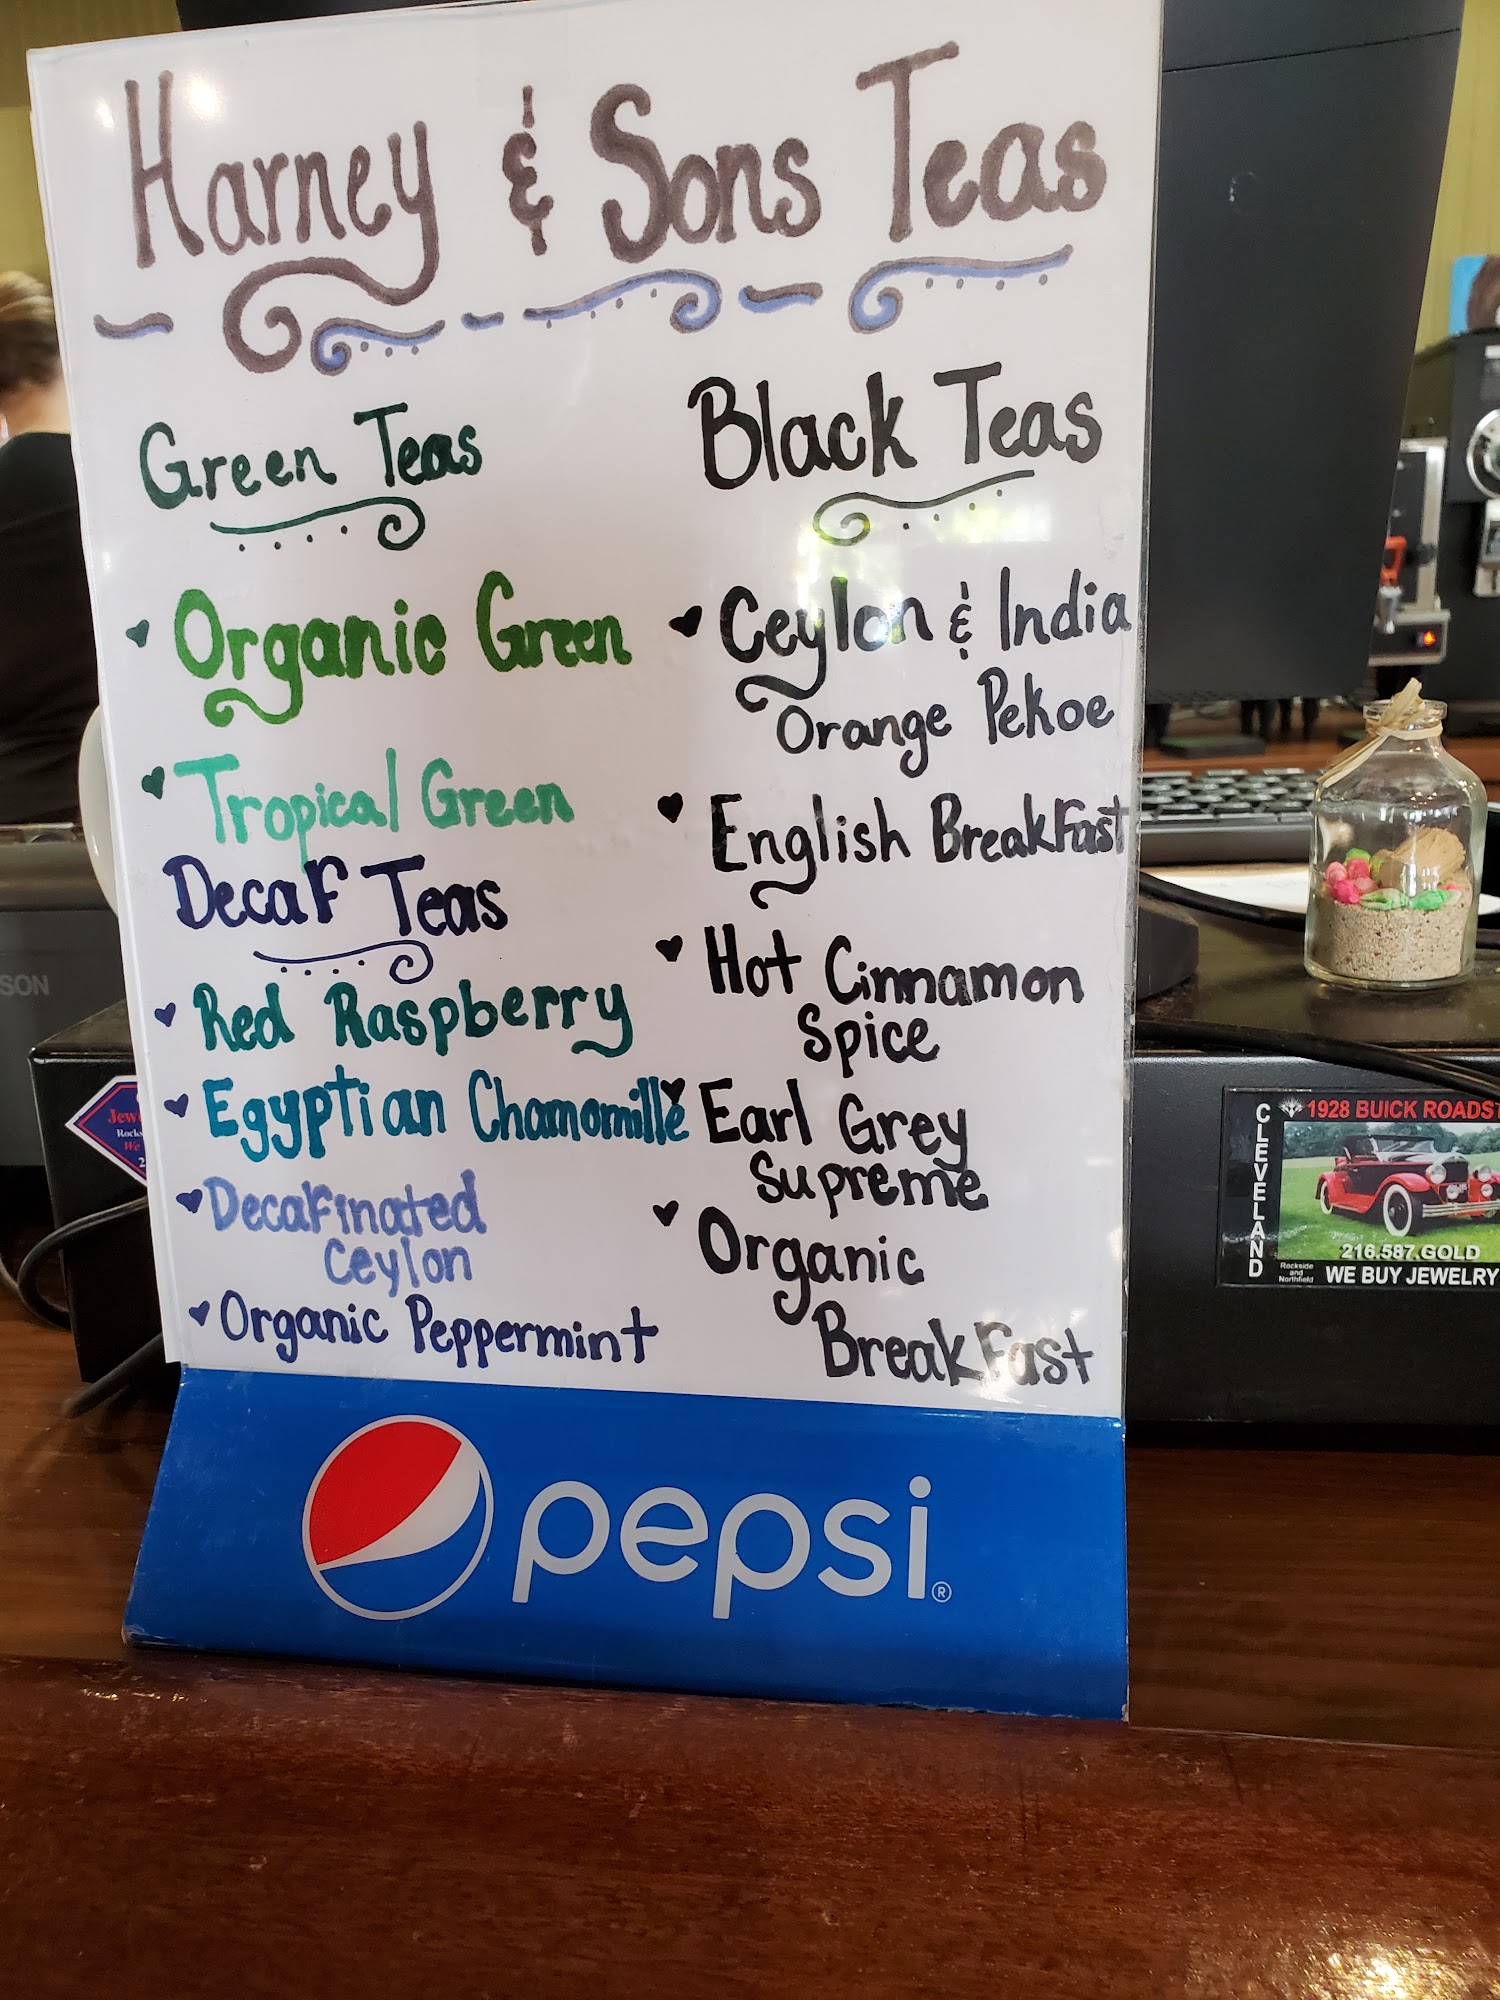 Harney & Sons Teas
Green Teas
Organic Green
Tropical Green
Decaf Teas
Red Raspberry
Egyptian Chamomille
Decafinated
Ceylon
Organic Peppermint
Black Teas
Ceylon & India
Orange Pekoe
English Breakfast
Hot Cinnamon
Spice
Earl Grey
Supreme
Organic
Breakfast
pepsi®
SON
CLEVELAND
1928 BUICK ROADST
216.587.GOLD
Rockside
and
Northfield
WE BUY JEWELRY